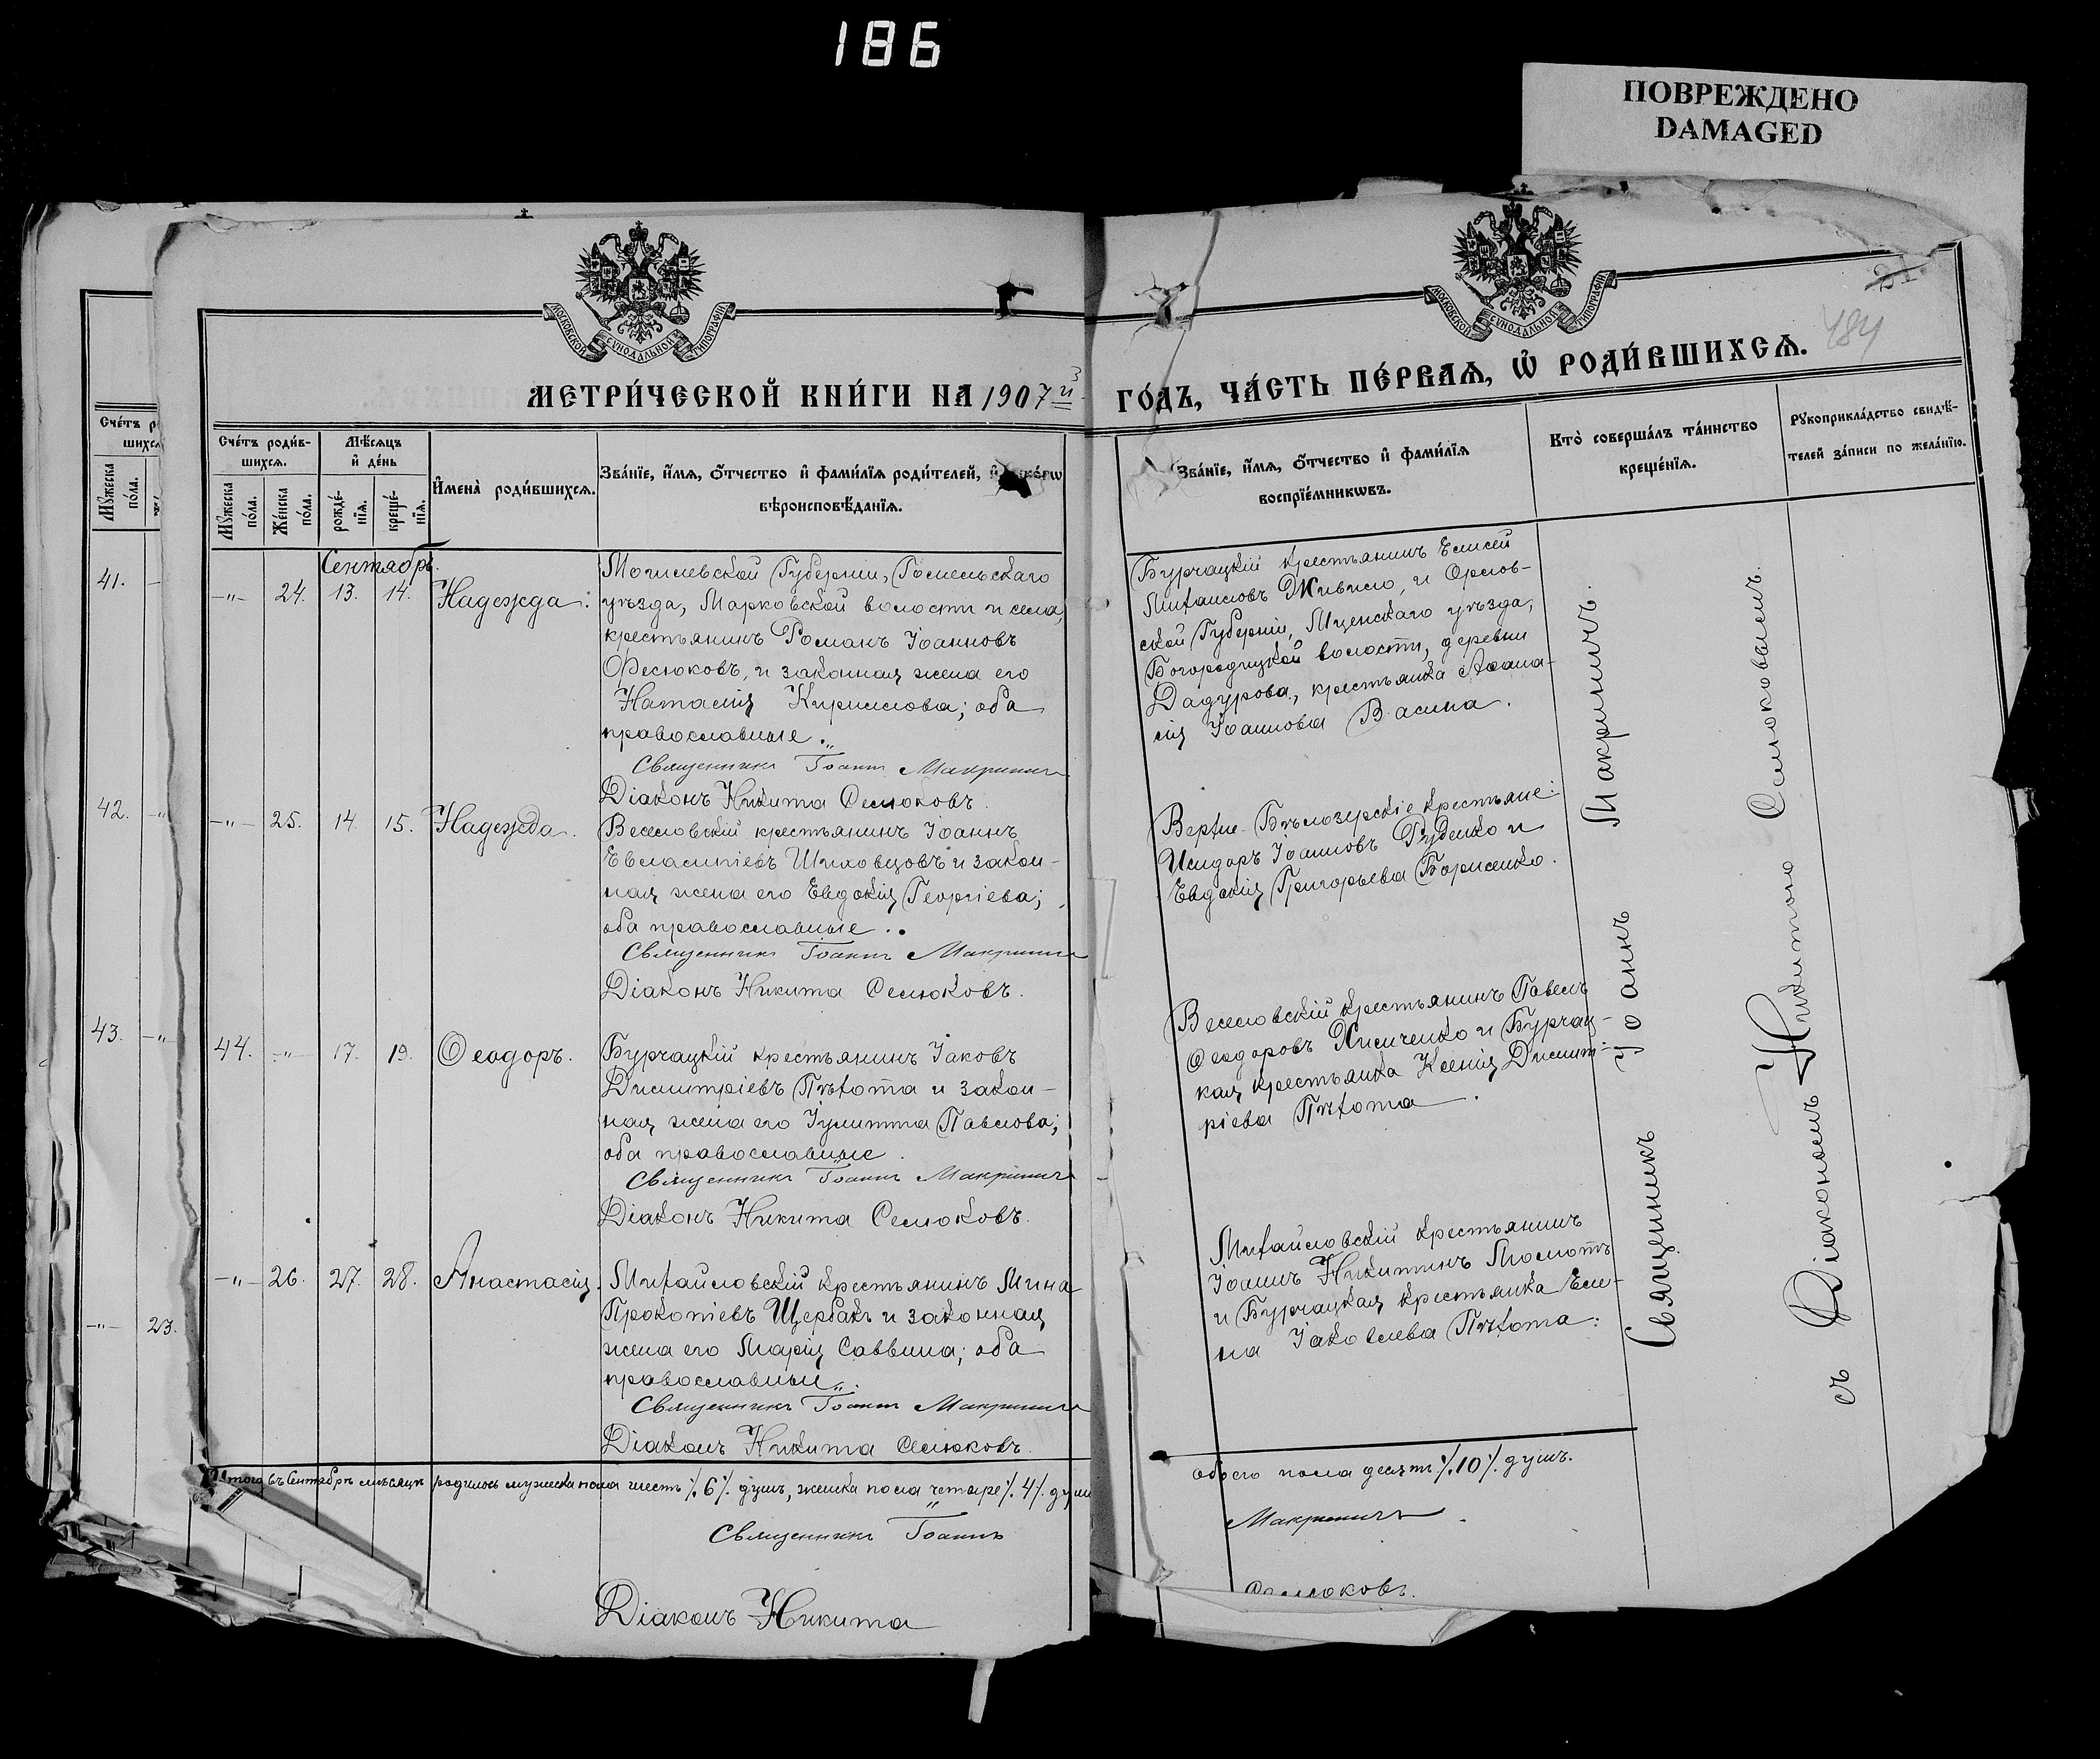 186
ПОВРЕЖДЕНО
DAMAGED
МОСКОВСКОЙ СУНОДАЛЬНОЙ ТИПОГРАФІИ
МОСКОВСКОЙ СУНОДАЛЬНОЙ ТИПОГРАФІИ
21.
484
МЕТРИ́ЧЕСКОЙ КНИ́ГИ НА 1907й
ГО́ДЪ, ЧА́СТЬ ПЕ́РВАѦ, Ѡ҆ РОДИ́ВШИХСѦ.
Сче́тъ роди́в-
шихсѧ.
Мꙋжеска по́ла.
Же́нска по́ла.
Мѣ́сѧцъ
и҆ де́нь
рожде́-
нїѧ.
креще́-
нїѧ.
И҆мена̀ роди́вшихсѧ.
Зва́нїе, и҆́мѧ, ѻ҆́тчество и҆ фами́лїѧ роди́телей,
вѣроисповѣ́данїѧ.
Зва́нїе, и҆́мѧ, ѻ҆́тчество и҆ фами́лїѧ
воспрїе́мникѡвъ.
Кто̀ соверша́лъ та́инство
креще́нїѧ.
Рꙋкоприкла́дство свидѣ́-
телей за́писи по жела́нїю.
41.
42.
43.
23.
Сентябрь.
-"- 24. 13. 14. Надежда:
Могилевской Губерніи, Гомельскаго
уѣзда, Марковской волости и села,
крестьянинъ Романъ Іоанновъ
Фесюковъ, и законная жена его
Наталія Кириллова; оба
православные.
Священникъ Іоаннъ Макриничъ
Діаконъ Никита Селюковъ.
Бурчацкій крестьянинъ Елисей
Михаиловъ Живило, и Орлов-
ской Губерніи, Мценскаго уѣзда,
Богородицкой волости, деревни
Дадурова, крестьянка Агафа-
нія Іоаннова Васина.
-"- 25. 14. 15. Надежда.
Веселовскій крестьянинъ Іоаннъ
Евлампіевъ Шиховцовъ и закон-
ная жена его Евдокія Георгіева;
оба православные.
Священникъ Іоаннъ Макриничъ
Діаконъ Никита Селюковъ.
Верхне-Бѣлозерскіе крестьяне:
Исидоръ Іоанновъ Руденко и
Евдокія Григорьева Борисенко.
44. -"- 17. 19. Ѳеодоръ.
Бурчацкій крестьянинъ Іаковъ
Димитріевъ Пѣхота и закон-
ная жена его Іулитта Павлова;
оба православные.
Священникъ Іоаннъ Макриничъ
Діаконъ Никита Селюковъ.
Веселовскій крестьянинъ Павелъ
Ѳеодоровъ Лисиченко и Бурчац-
кая крестьянка Ксенія Димит-
ріева Пѣхота.
-"- 26. 27. 28. Анастасія.
Михайловскій крестьянинъ Мина
Прокопіевъ Щербакъ и законная
жена его Марія Саввина; оба
православны.
Священникъ Іоаннъ Макриничъ
Діаконъ Никита Селюковъ.
Михайловскій крестьянинъ
Іоаннъ Никитинъ Молотъ
и Бурчацкая крестьянка Еле-
на Іаковлева Пѣхота.
Священникъ Іоаннъ Макриничъ.
съ Діакономъ Никитою Селюковымъ.
Итого въ Сентябрѣ мѣсяцѣ родилось мужеска пола шесть ./.6./. душъ, женска пола четыре ./.4./. душ
обоего пола десять ./.10./. душъ.
Священникъ Іоаннъ
Макриничъ.
Діаконъ Никита
Селюковъ.